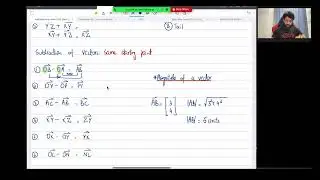 ② YZ + XY =
XY + YZ = XZ
③ Tail
Subtraction of Vectors same starting point
① OB - OA = AB
② OY - OP = PY
③ AC - AB = BC
④ XY - XZ = ZY
⑤ OX - OY = YX
⑥ OL - ON = NL
*Magnitude of a vector
AB = [3 4] |AB| = √3²+4²
|AB| = 5 units